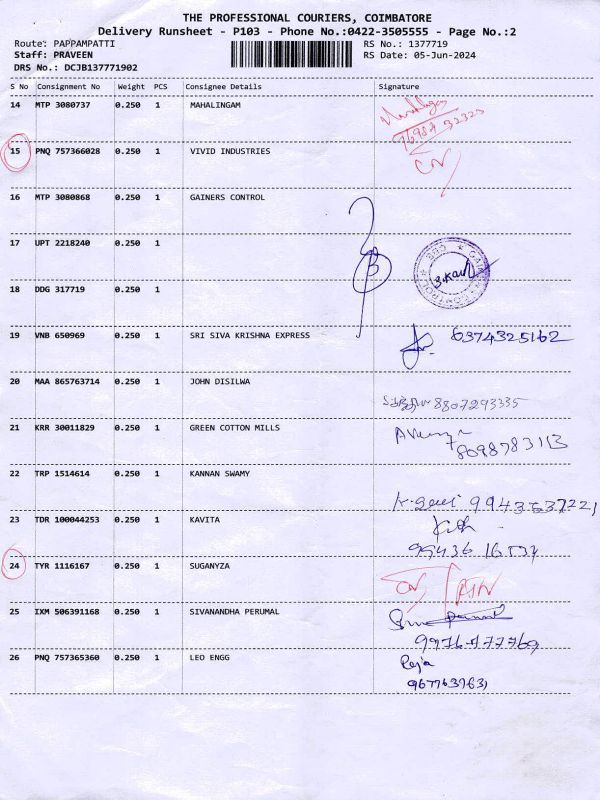 THE PROFESSIONAL COURIERS, COIMBATORE
Delivery Runsheet - P103 - Phone No.:0422-3505555 - Page No.:2
Route: PAPPAMPATTI RS No.: 1377719
Staff: PRAVEEN RS Date: 05-Jun-2024
DRS No.: DCJB137771902
S No Consignment No Weight PCS Consignee Details Signature
14 MTP 3080737 0.250 1 MAHALINGAM
15 PNQ 757366028 0.250 1 VIVID INDUSTRIES
16 MTP 3080868 0.250 1 GAINERS CONTROL
17 UPT 2218240 0.250 1
18 DDG 317719 0.250 1
19 VNB 650969 0.250 1 SRI SIVA KRISHNA EXPRESS 6374325162
20 MAA 865763714 0.250 1 JOHN DISILWA 8807293335
21 KRR 30011829 0.250 1 GREEN COTTON MILLS
8098783113
22 TRP 1514614 0.250 1 KANNAN SWAMY
23 TDR 100044253 0.250 1 KAVITA
24 TYR 1116167 0.250 1 SUGANYZA
25 IXM 506391168 0.250 1 SIVANANDHA PERUMAL
26 PNQ 757365360 0.250 1 LEO ENGG Raja